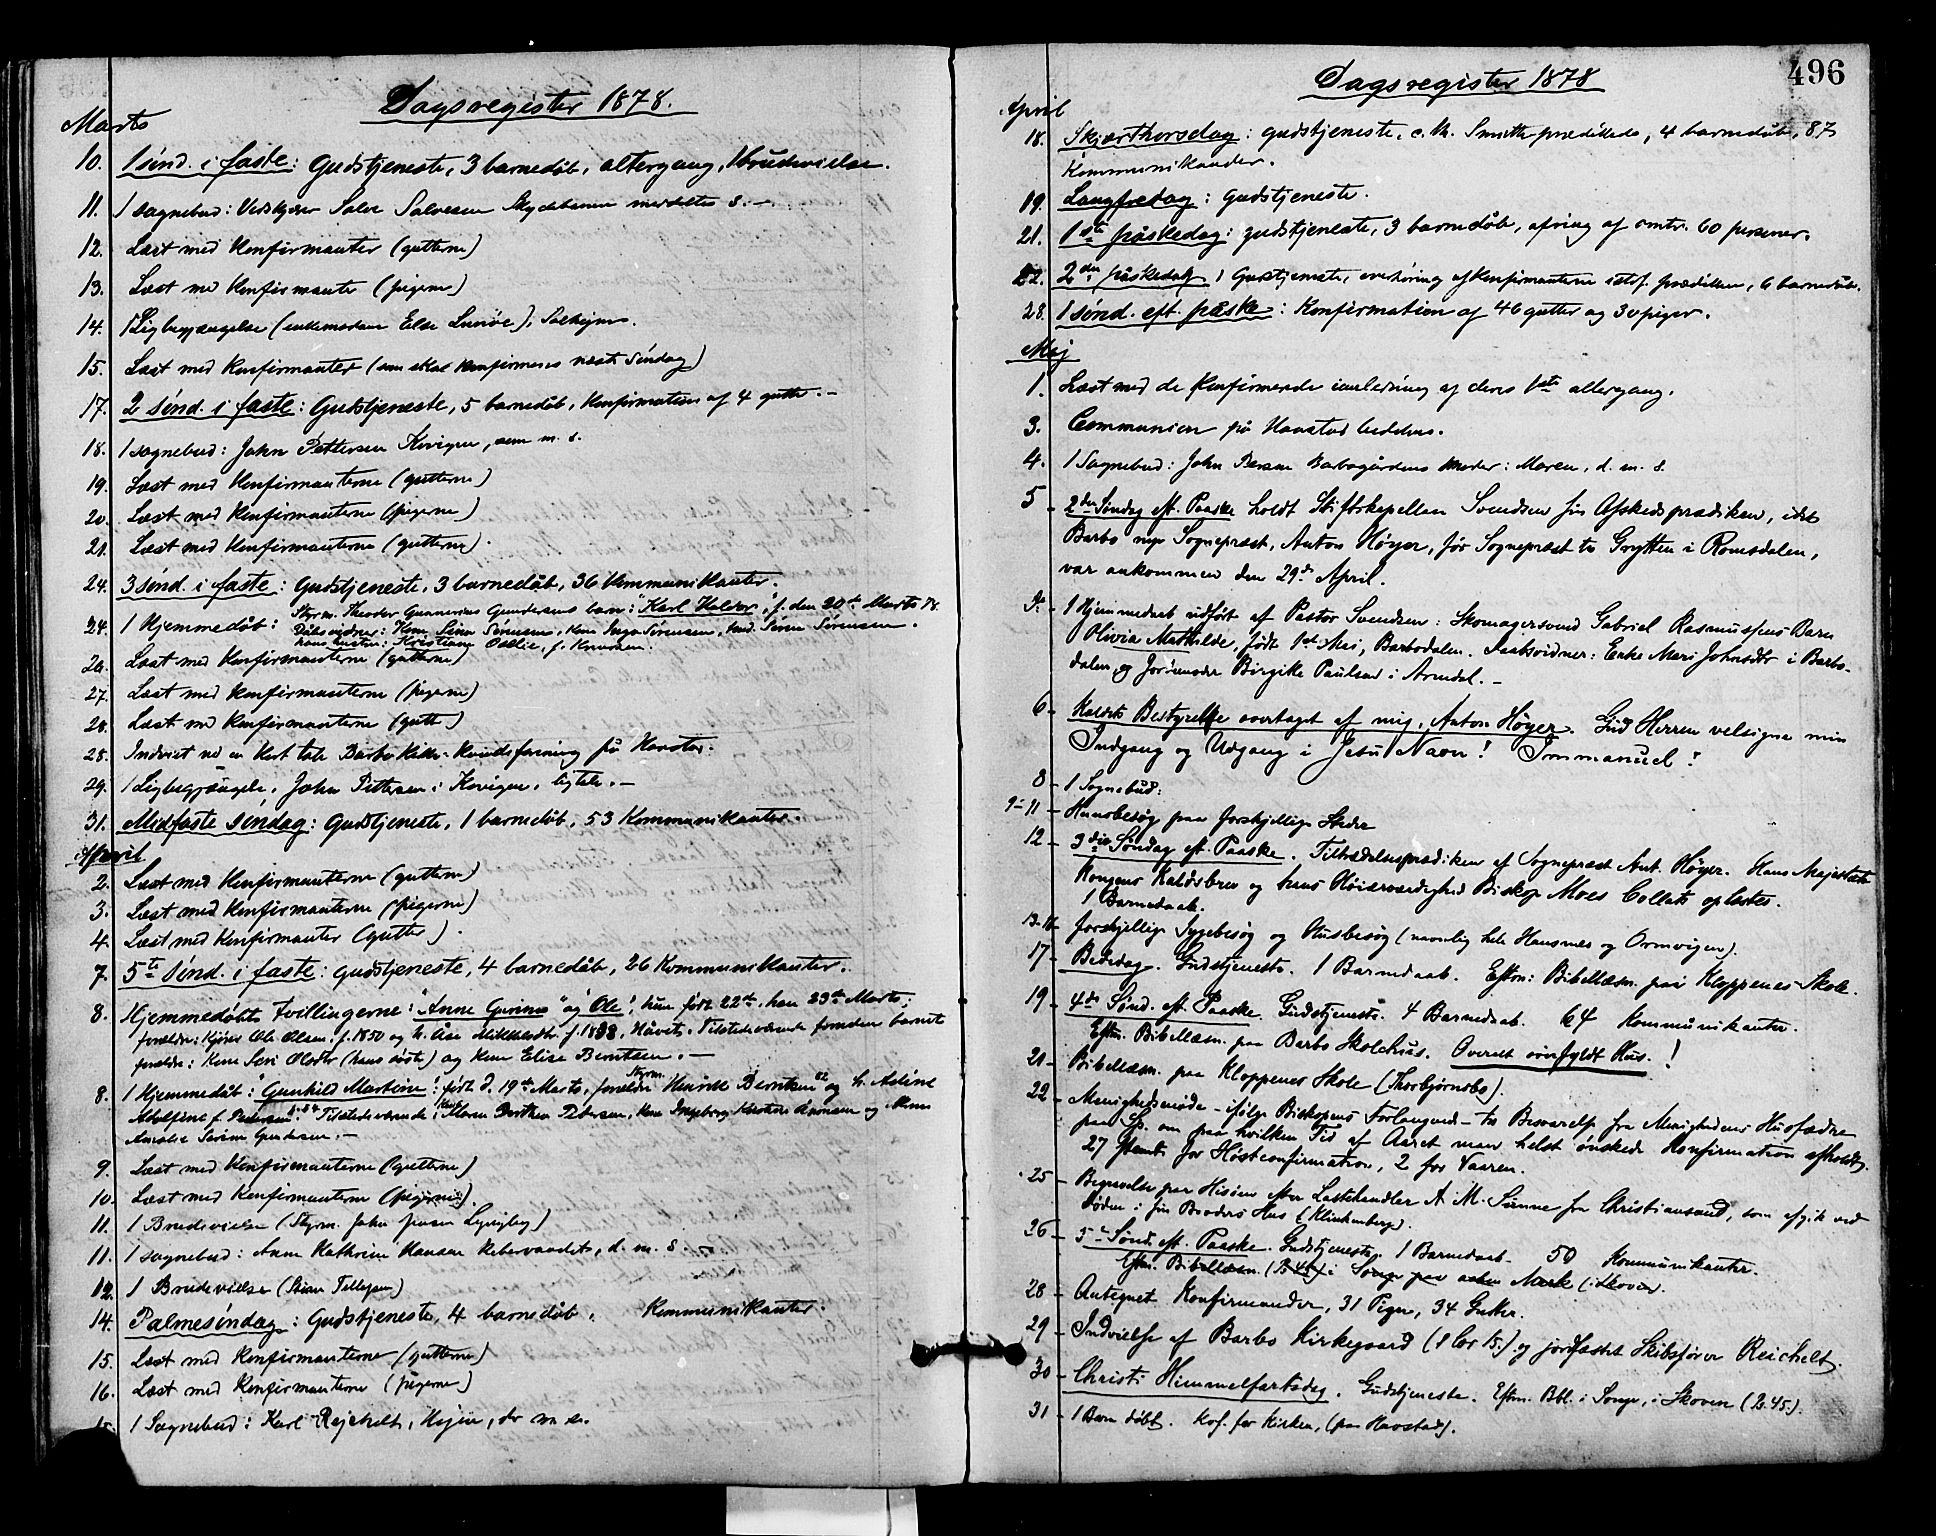 Dagsregister 1878.
Marts
10. 1 sønd. i faste: Gudstjeneste, 3 barnedøb, altergang, 1 brudevielse.
11. 1 sognebud: Salve Salvesen
12. Læst med Konfirmanter (gutterne)
13. Læst med Konfirmanter (pigerne)
14. 1 Ligbegjængelse (enkemadam Else
15. Læst med Konfirmanter (som skal konfirmeres næste Søndag)
17. 2 sønd. i faste: Gudstjeneste, 5 barnedøb, Konfirmation af 4 gutter.-
18. 1 sognebud: John Pettersen Kovigen, som m. s.
19. Læst med Konfirmanterne (gutterne)
20. Læst med Konfirmanterne (pigerne)
21. Læst med Konfirmanterne (gutterne).
24. 3 sønd. i faste: Gudstjeneste, 3 barnedøb, 36 Kommunikanter.
24. 1 Hjemmedøb: Styrm. Theodor Gunnerius Gundersens barn: "Karl Haldor", f. den 20de Marts 78.
Dåbsvidner: Sørensen, Kone Inga Sørensen, Søren Sørensen.
26. Læst med Konfirmanterne (gutterne)
27. Læst med Konfirmanterne (pigerne)
28. Læst med Konfirmanterne (gutter)
28. Indviet ved en kort tale Barbo på Havstad.
29. 1 Ligbegjængelse, John Pettersen i Kovigen, ligtale.-
31. Midfaste søndag: Gudstjeneste, 1 barnedøb, 53 Kommunikanter.
April
2. Læst med Konfirmanterne (gutterne)
3. Læst med Konfirmanterne (pigerne)
4. Læst med Konfirmanter (gutter).
7. 5te sønd. i faste: gudstjeneste, 4 barnedøb, 26 Kommunikanter.
8. Hjemmedøbte Tvillingerne: "Anne Gurine" og "Ole", hun født 22de, han 23de Marts;
forældre: Ole Olsen f. 1850 og h. Åse f. Tilstedeværende foruden barnets
forældre: Kone Olsdtr (hans søster) og Kone Elise Berntsen.-
8. 1 Hjemmedøbt: Gunhild Martine, født d. 19de Marts, forældre Styrm. Henrik Berntsen og h. Aline
Adolfine f. Pedersen Tilstedeværende: Maren Pedersen, Kone Ingeborg Aanonsen og
Amalie
9. Læst med Konfirmanterne (gutterne)
10. Læst med Konfirmanterne (pigerne).
11. 1 Brudevielse (Styrm. John
11. 1 sognebud: Anne Kathrine Hansen d. m. s.
12. 1 Brudevielse (Tellefsen)
14. Palmesøndag: Gudstjeneste, 4 barnedøb, Kommunikanter.
15. Læst med Konfirmanterne (gutterne)
16. Læst med Konfirmanterne (pigerne)
1 Sognebud: Karl Rejchelt,
496
Dagsregister 1878
April
18. Skjærthorsdag: gudstjeneste, c. th. Smith prædikede, 4 barnedøb, 87
Kommunikander.
19. Langfredag: gudstjeneste.
21. 1ste påskedag: gudstjeneste, 3 barnedøb, ofring af omtr. 60 personer.
22. 2den påskedag, Gudstjeneste, overhøring af Konfirmanterne istdf. prædiken, 6 barnedøb.
28. 1 sønd. eft. påske: Konfirmation af 46 gutter og 30 piger.
Maj
1. Læst med de Konfirmerede i anledning af deres 1ste altergang.
3. Communion på Havstad bedehus.
4. 1 Sognebud: John Barbogårdens Moder: Maren, d. m. s.
5 - 2den Søndag eft. Paaske holdt Stiftskapellan Svendsen sin Afskedsprædiken, idet
Barbo nye Sogneprest, Anton Høyer, før Sogneprest til Grytten i Romsdalen,
var ankommen den 29de April.
1 Hjemmedaab udført af Pastor Svendsen: Skomagersvend Gabriel Rasmussens Barn
Olivia Mathilde, født 1st Mai, Barbodalen. Daabsvidner: Enke Mari Johnsdtr i Barbo-
dalen og Jordmoder Birgithe Paulsen i Arendal.-
6 - Kaldets Bestyrelse overtaget af mig, Anton Høyer. Gud Herren velsigne min
Indgang og Udgang i Jesu Navn! Immanuel!
8 - 1 Sognebud:
9-11 - Huusbesøg paa forskjellige Steder
12 - 3die Søndag eft. Paaske. Tiltrædelsesprædiken af Sogneprest Ant. Høyer. Hans Majestæts
Kongens Kaldsbrev og hans Høiærværdighed Biskop Moes Collats oplæstes.
1 Barnedaab.
13-16 - Forskjellige Sygebesøg og Husbesøg (navnlig hele Hansnes og Ormvigen).
17 - Bededag. Gudstjeneste. 1 Barnedaab. Eftm: Bibellæsn. paa Kloppenes Skole.
19 - 4de Sønd. eft. Paaske. Gudstjeneste. 4 Barnedaab. 64 Kommunikanter.
Eftm. Bibellæsn. paa Barbo Skolehus. Overalt overfyldt Hus!
21 - Bibellæsn. paa Kloppenes Skole (Thorbjørnsbo).
22 - Menighedsmøde - ifølge Biskopens Forlangende - til Besvarelse fra Menighedens Husfædre
paa Sp. om paa hvilken Tid af Aaret man helst ønskede Konfirmation afholdt.
27 stemte for Høstconfirmation, 2 for Vaaren.
25 - Begravelse paa Hisøen efter Lastehandler A. M. Sinne fra Christianssand, som afgik ved
Døden i sin Broders Hus (Klinkenberg).
26 - 5te Sønd. eft. Paaske. Gudstjeneste. 1 Barnedaab. 50 Kommunikanter.
Eftm. Bibellæsn. i Songe paa aaben Mark (i Skoven).
28 - Antegnet Konfirmander, 31 Piger, 34 Gutter.
29 - Indvielse af Barbo Kirkegaard (1 Cor 15.) og jordfæstet Skibsfører Reichelt.
30 - Christi Himmelfartsdag. Gudstjeneste. Eftm. Bbl. i Songe, i Skoven (B. 45.).
31 - 1 Barn døbt. Kof. for Kirken, (paa Havstad).